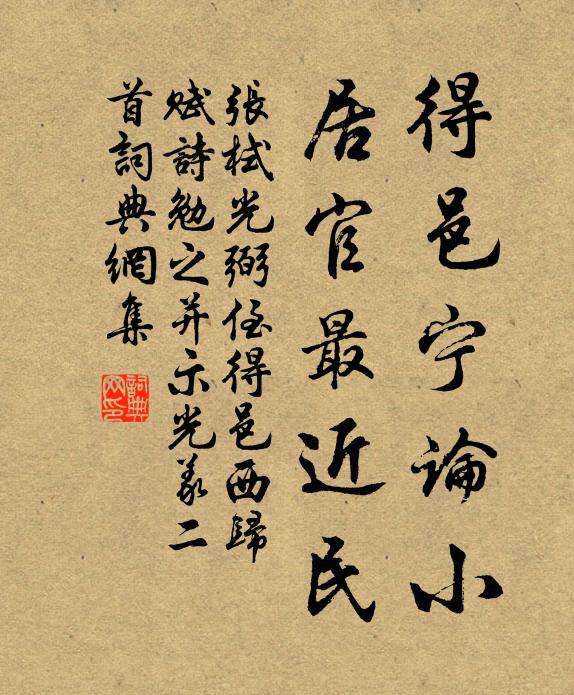 得邑宁論小
居官最近民
張栻光弼侄得邑西歸
賦詩勉之并示光義二
首詞典網集
詞典
网印